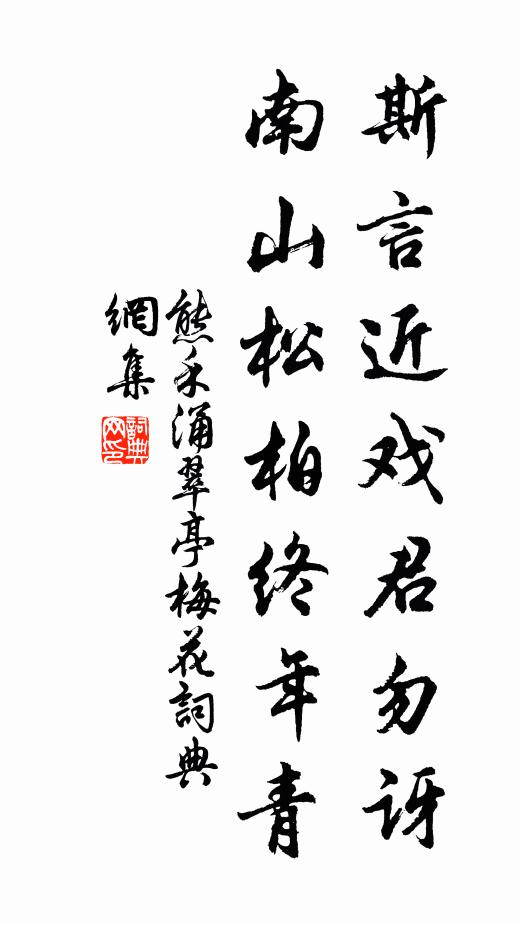 斯言近戏君勿讶
南山松柏终年青
熊禾涌翠亭梅花詞典
網集
詞典
网印